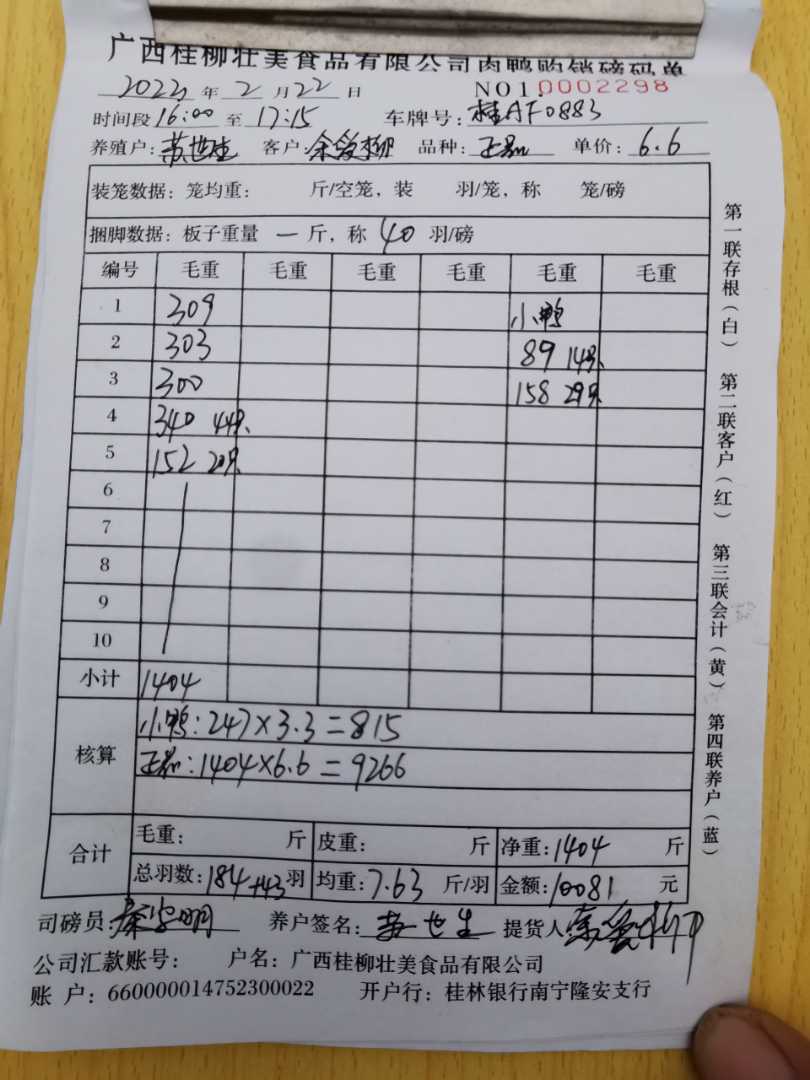 广西桂柳壮美食品有限公司肉鸭购销磅码单
2022年2月22日 NO1.0002298
时间段16:00至17:15 车牌号:桂AF0883
养殖户:苏世生 客户: 品种: 单价:6.6
装笼数据:笼均重: 斤/空笼,装 羽/笼,称 笼/磅
捆脚数据:板子重量 一斤,称 40 羽/磅
编号 毛重 毛重 毛重 毛重 毛重 毛重
1 309 小鸭
2 303 89 14只
3 300 158 29只
4 340 44只
5 152 20只
6
7
8
9
10
小计 1404
核算 小鸭:247×3.3=815
1404×6.6=9266
合计 毛重: 斤 皮重: 斤 净重:1404 斤
总羽数:184+43羽 均重:7.63 斤/羽 金额:10081 元
司磅员: 养户签名:苏世生 提货人:
公司汇款账号: 户名:广西桂柳壮美食品有限公司
账 户:660000014752300022 开户行:桂林银行南宁隆安支行
第一联存根(白) 第二联客户(红) 第三联会计(黄) 第四联养户(蓝)